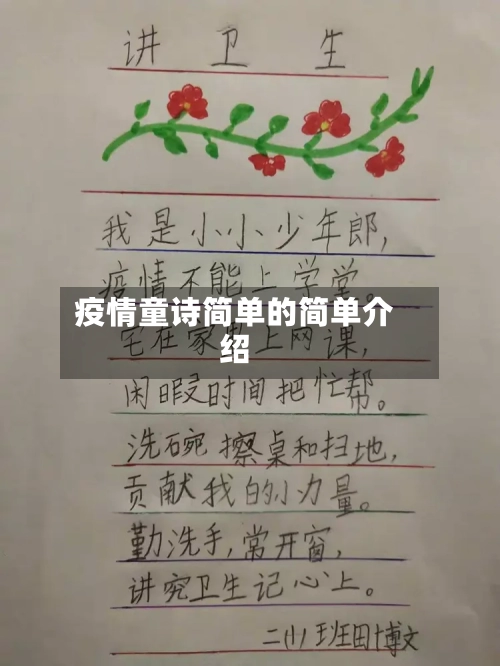 讲卫生
我是小小少年郎,
疫情不能上学堂。
疫情童诗简单的简单介
绍
宅在家里上网课,
闲暇时间把忙帮。
洗碗擦桌和扫地,
贡献我的小力量。
勤洗手,常开窗,
讲究卫生记心上。
二(1)班田博文